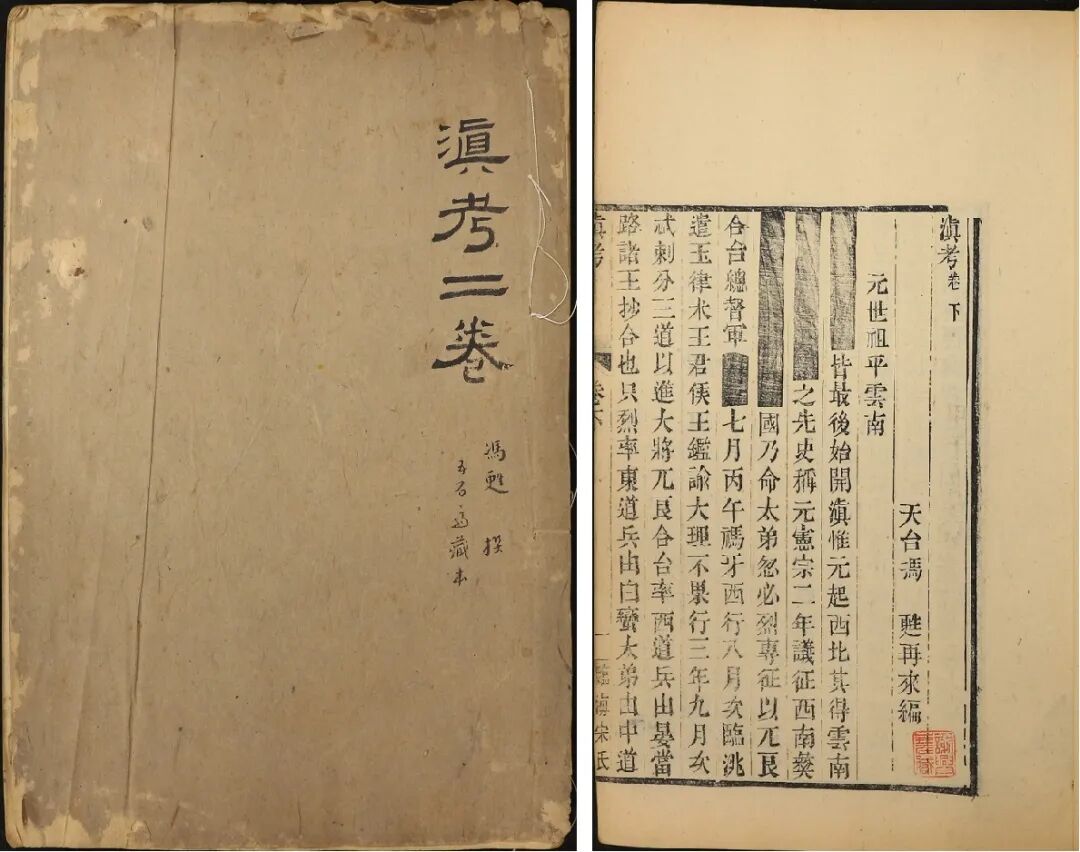 滇考二卷
馮甦 撰
五石斋藏本
滇考卷下
天台馮 甦再來編
元世祖平雲南
皆最後始開滇惟元起西北其得雲南
之先史稱元憲宗二年議征西南
國乃命太弟忽必烈專征以兀良
合台總督軍 七月丙午禡牙西行八月次臨洮
遣玉律朮王君候王鑑諭大理不果行三年九月次
忒剌分三道以進大將兀良合台率西道兵由晏當
路諸王抄合也只烈率東道兵由白蠻太弟由中道
滇考 卷下 一 臨海宋氏